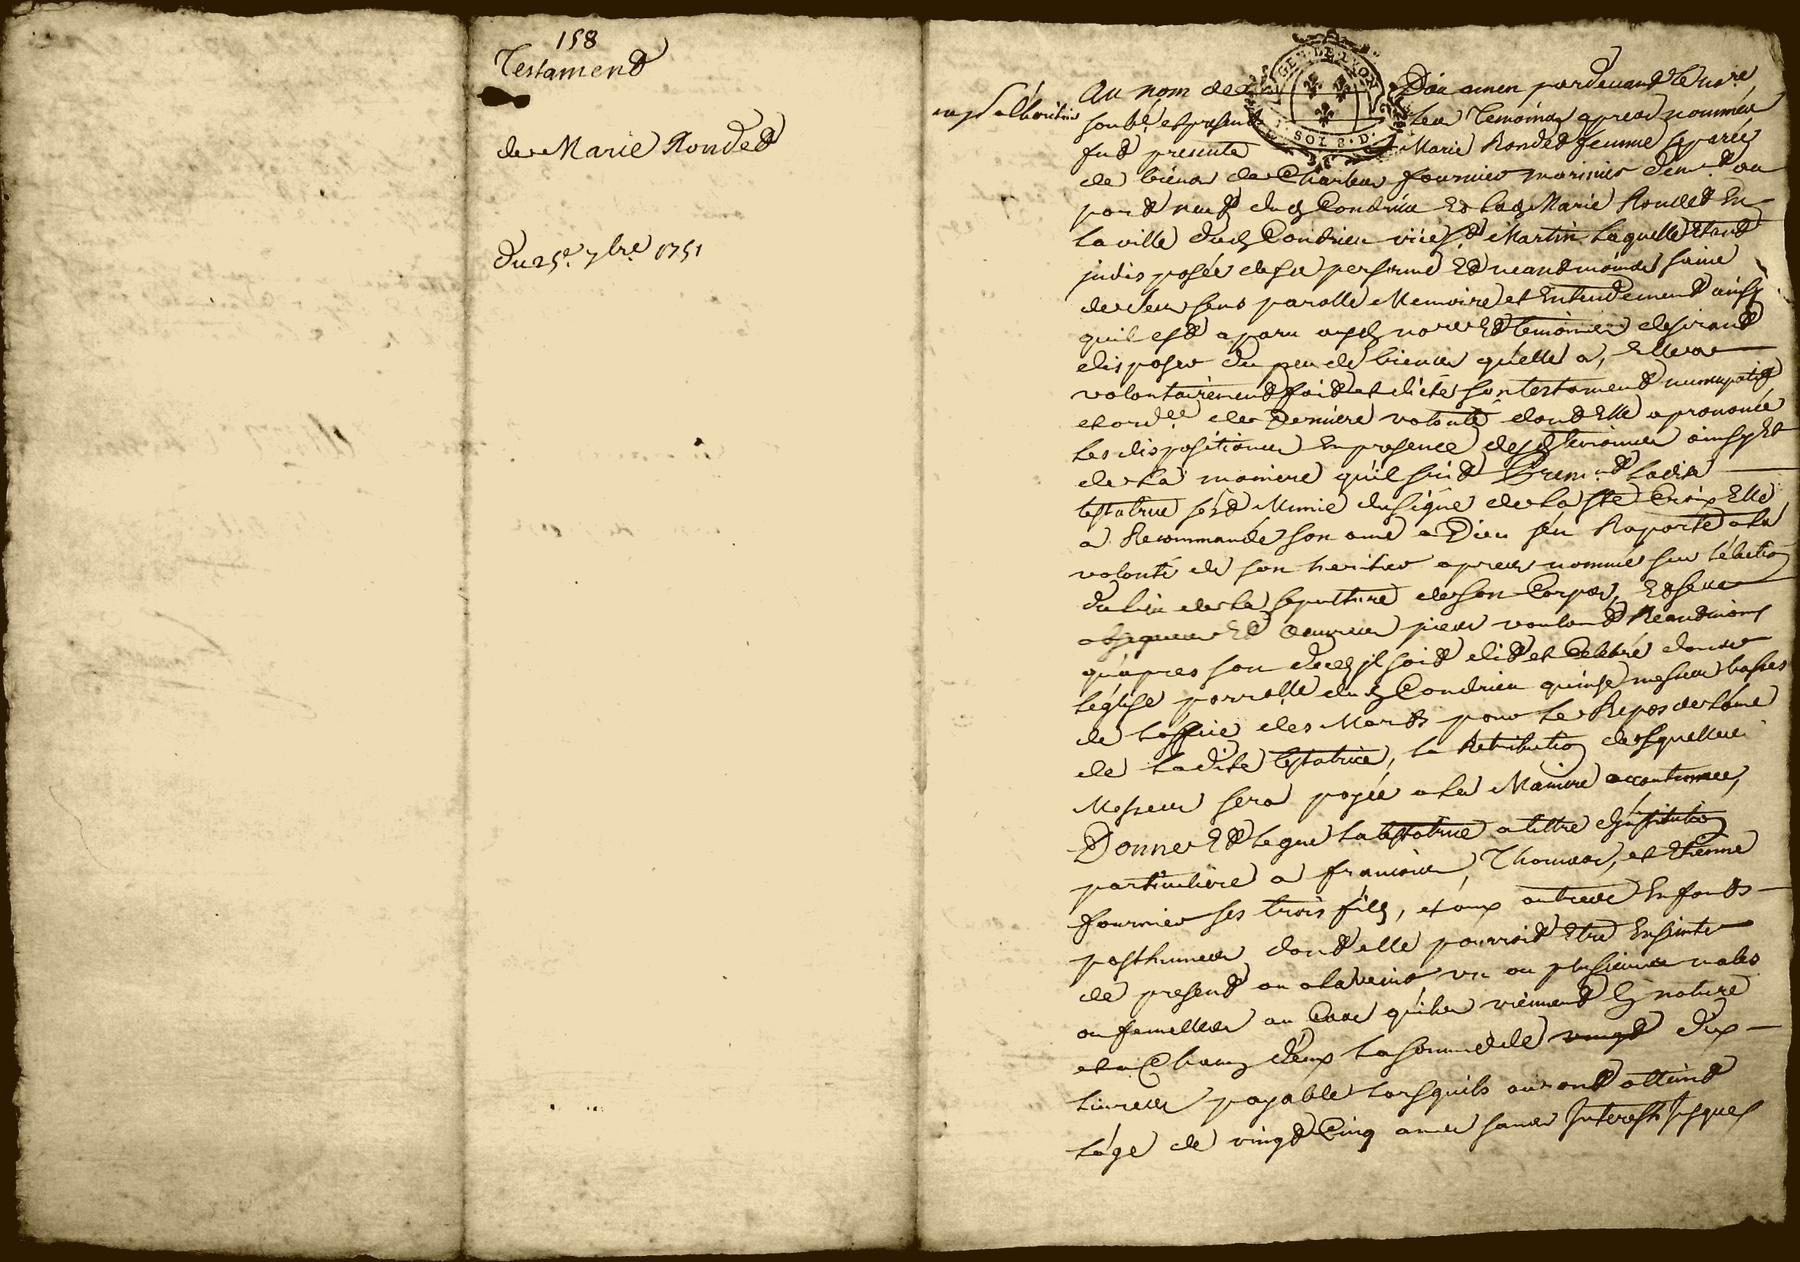 158
Testament
de Marie Rondet
du 25e. 7bre 1751
GEN. DE LYON
SOLS. D.
Au nom de Dieu amen pardevant le nore
soubsé. et presents les Temoins apres nommés
fut presente Marie Rondet femme separée
de biens de Charles fournier marinier demt. au
port neuf dud Condrieu Et lad Marie Rondet En
la ville dud Condrieu vis St Martin Laquelle Etant
indisposée de sa personne Et neantmoins saine
de ses sens parolle Memoire et Entendement ainsy
quil est aparu auxd nore Et temoins desirant
disposer du peu de biens quelle a, Elle a
volontairement fait et dicté son testament nuncupatif
et ordee de Derniere volonté dont Elle a prononcé
Les dispositions En presence desd temoins ainsy Et
de la maniere quil suit Premt. Ladite
testatrice s'est Munie du signe de la ste Croix Elle
a Recommandé son ame a Dieu s'en Raporte a la
volonté de son heritier apres nommé sur lelection
du lieu de la sepulture de son Corps, Et ses
obseques Et oeuvres pies voulant Neantmoins
qu'apres son deces jl soit dit et Celebré dans
léglise parrelle dud Condrieu quinse messes basses
de loffice des Morts pour Le Repos de lame
de Ladite testatrice, la Retribution desquelles
Messes sera payée a la Maniere accoutumee,
Donne Et Legue la testatrice a tittre d'institution
particuliere a francois, Thomas, et Etienne
fournier ses trois fils, et aux autres Enfants
posthumes dont elle pourroit Etre Ensinte
de present ou a lavenir un ou plusieurs males
ou femelles au Cas quils viennent En nature
et a Chacun deux La somme de vingt dix
livres payable Lorsquils auront atteint
l'age de vingt Cinq ans sans Interest jusques